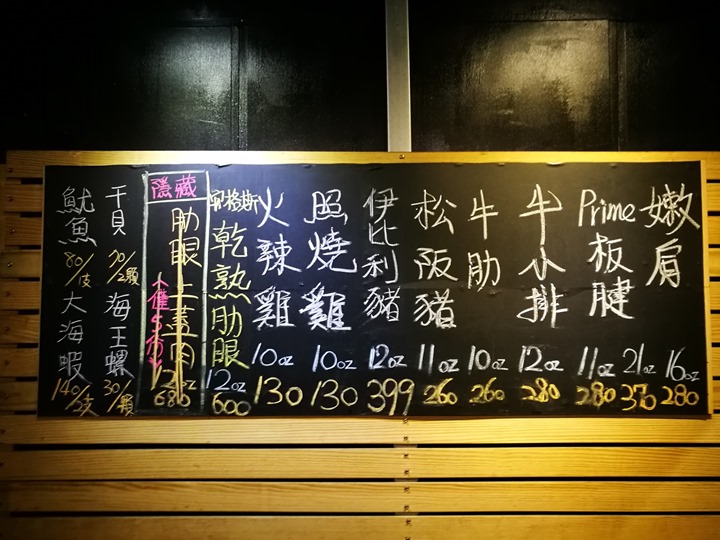 嫩肩
16oz
280
Prime板腱
11oz 21oz
280 370
牛小排
12oz
280
牛肋
10oz
260
松阪豬
11oz
260
伊比利豬
12oz
399
照燒雞
10oz
130
火辣雞
10oz
130
乾熟肋眼
12oz
600
隱藏
肋眼上蓋肉
(僅5分)
12oz
680
干貝
70/2顆
海王螺
30/顆
魷魚
80/支
大海蝦
140/2支